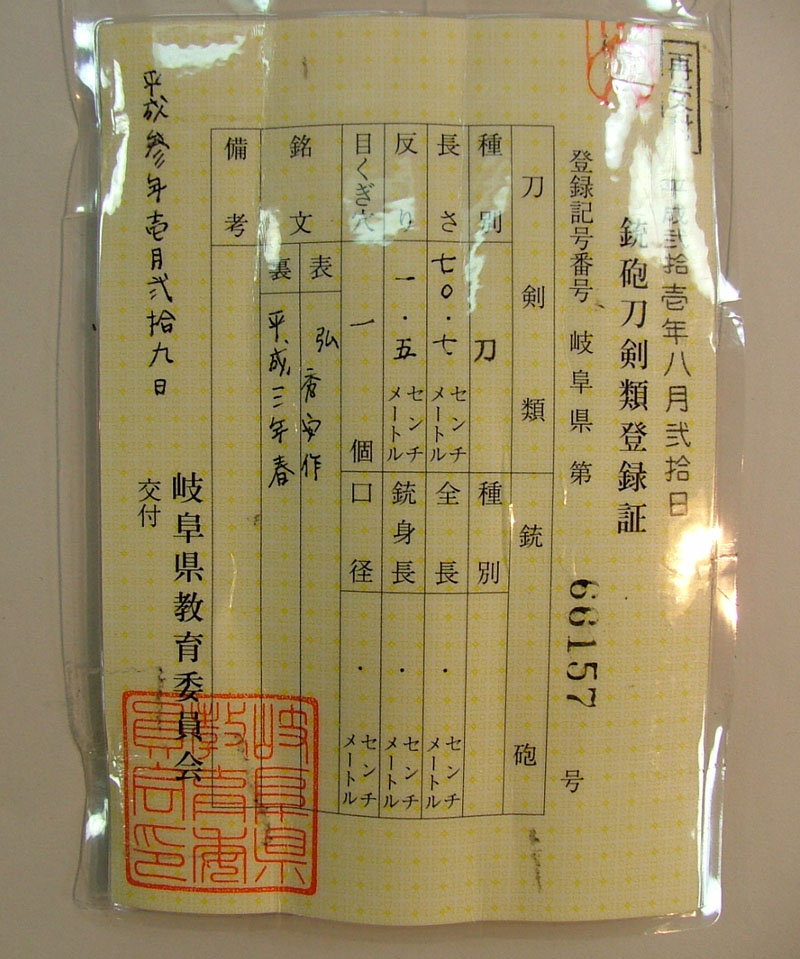 再交付
平成弐拾壱年八月弐拾日
銃砲刀剣類登録証
登録記号番号 岐阜県 第 66157 号
刀剣類
銃砲
種別 刀
種別
長さ 七〇.七 センチメートル
全長 . センチメートル
反り 一.五 センチメートル
銃身長 . センチメートル
目くぎ穴 一 個
口径 . センチメートル
銘文
表 弘秀安作
裏 平成三年春
備考
平成参年壱月弐拾九日
岐阜県教育委員会
交付
岐阜県教育委員会印